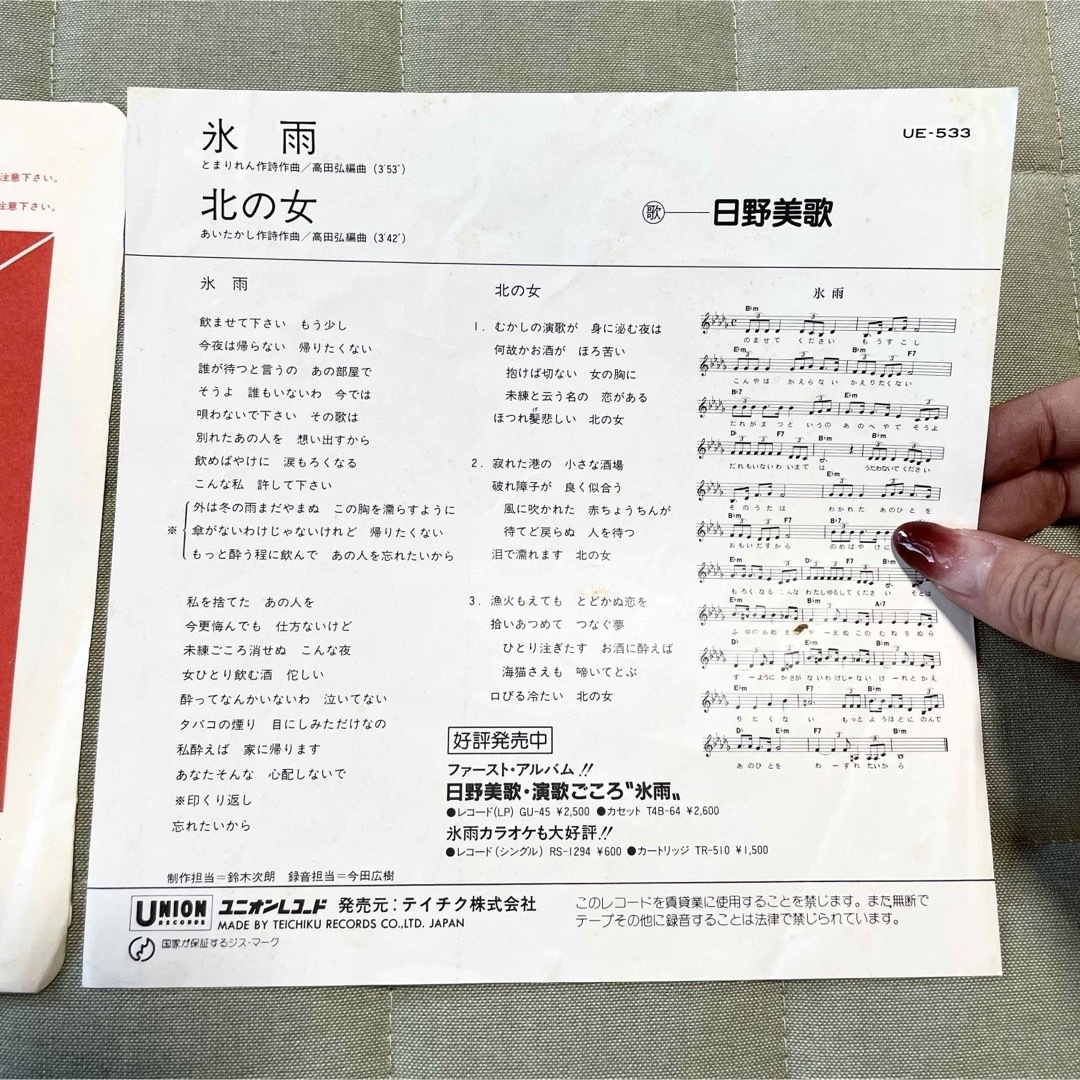 注意下さい。
注意下さい。
氷 雨
とまりれん作詩作曲/高田弘編曲(3'53")
北の女
あいたかし作詩作曲/高田弘編曲(3'42")
UE-533
歌 日野美歌
氷 雨
飲ませて下さい もう少し
今夜は帰らない 帰りたくない
誰が待つと言うの あの部屋で
そうよ 誰もいないわ 今では
唄わないで下さい その歌は
別れたあの人を 想い出すから
飲めばやけに 涙もろくなる
こんな私 許して下さい
外は冬の雨まだやまぬ この胸を濡らすように
※ 傘がないわけじゃないけれど 帰りたくない
もっと酔う程に飲んで あの人を忘れたいから
私を捨てた あの人を
今更悔んでも 仕方ないけど
未練ごころ消せぬ こんな夜
女ひとり飲む酒 侘しい
酔ってなんかいないわ 泣いてない
タバコの煙り 目にしみただけなの
私酔えば 家に帰ります
あなたそんな 心配しないで
※印くり返し
忘れたいから
制作担当=鈴木次朗 録音担当=今田広樹
北の女
1. むかしの演歌が 身に泌む夜は
何故かお酒が ほろ苦い
抱けば切ない 女の胸に
未練と云う名の 恋がある
ほつれ髪悲しい 北の女
げ
2. 寂れた港の 小さな酒場
破れ障子が 良く似合う
風に吹かれた 赤ちょうちんが
待てど戻らぬ 人を待つ
泪で濡れます 北の女
3. 漁火もえても とどかぬ恋を
拾いあつめて つなぐ夢
ひとり注ぎたす お酒に酔えば
海猫さえも 啼いてとぶ
口びる冷たい 北の女
好評発売中
ファースト・アルバム!!
日野美歌・演歌ごころ"氷雨"
●レコード(LP) GU-45 ¥2,500 ●カセット T4B-64 ¥2,600
氷雨カラオケも大好評!!
●レコード(シングル) RS-1294 ¥600 ●カートリッジ TR-510 ¥1,500
氷 雨
B♭m
のませて ください もうすこし
E♭m B♭m F7
こんやは かえらない かえりたくない
B♭7 E♭m
だれがまつと いうの あのへやで そうよ
D♭ F7 B♭m B♭m
だれもいないわ いまでは うたわないでください
E♭m
そのうたは わかれた あのひとを
B♭m F7 B♭7
おもいだすから のめばやけに
E♭m D♭ F7 B♭m
もろくなる こんな わたしゆるしてください そとは
E♭m B♭m A♭7
ふゆのあめま や ーまぬ このむねをぬら
D♭ E♭m B♭m
すーように かさがないわけじゃない けーれどかえ
E♭m F7 B♭m
りたくない もっとようほどにのんで
D♭ E♭m F7 B♭m
あのひとを わーすれたいから
UNION
RECORDS
ユニオンレコード 発売元:テイチク株式会社
MADE BY TEICHIKU RECORDS CO.,LTD. JAPAN
国家が保証するジス・マーク
このレコードを賃貸業に使用することを禁じます。また無断で
テープその他に録音することは法律で禁じられています。